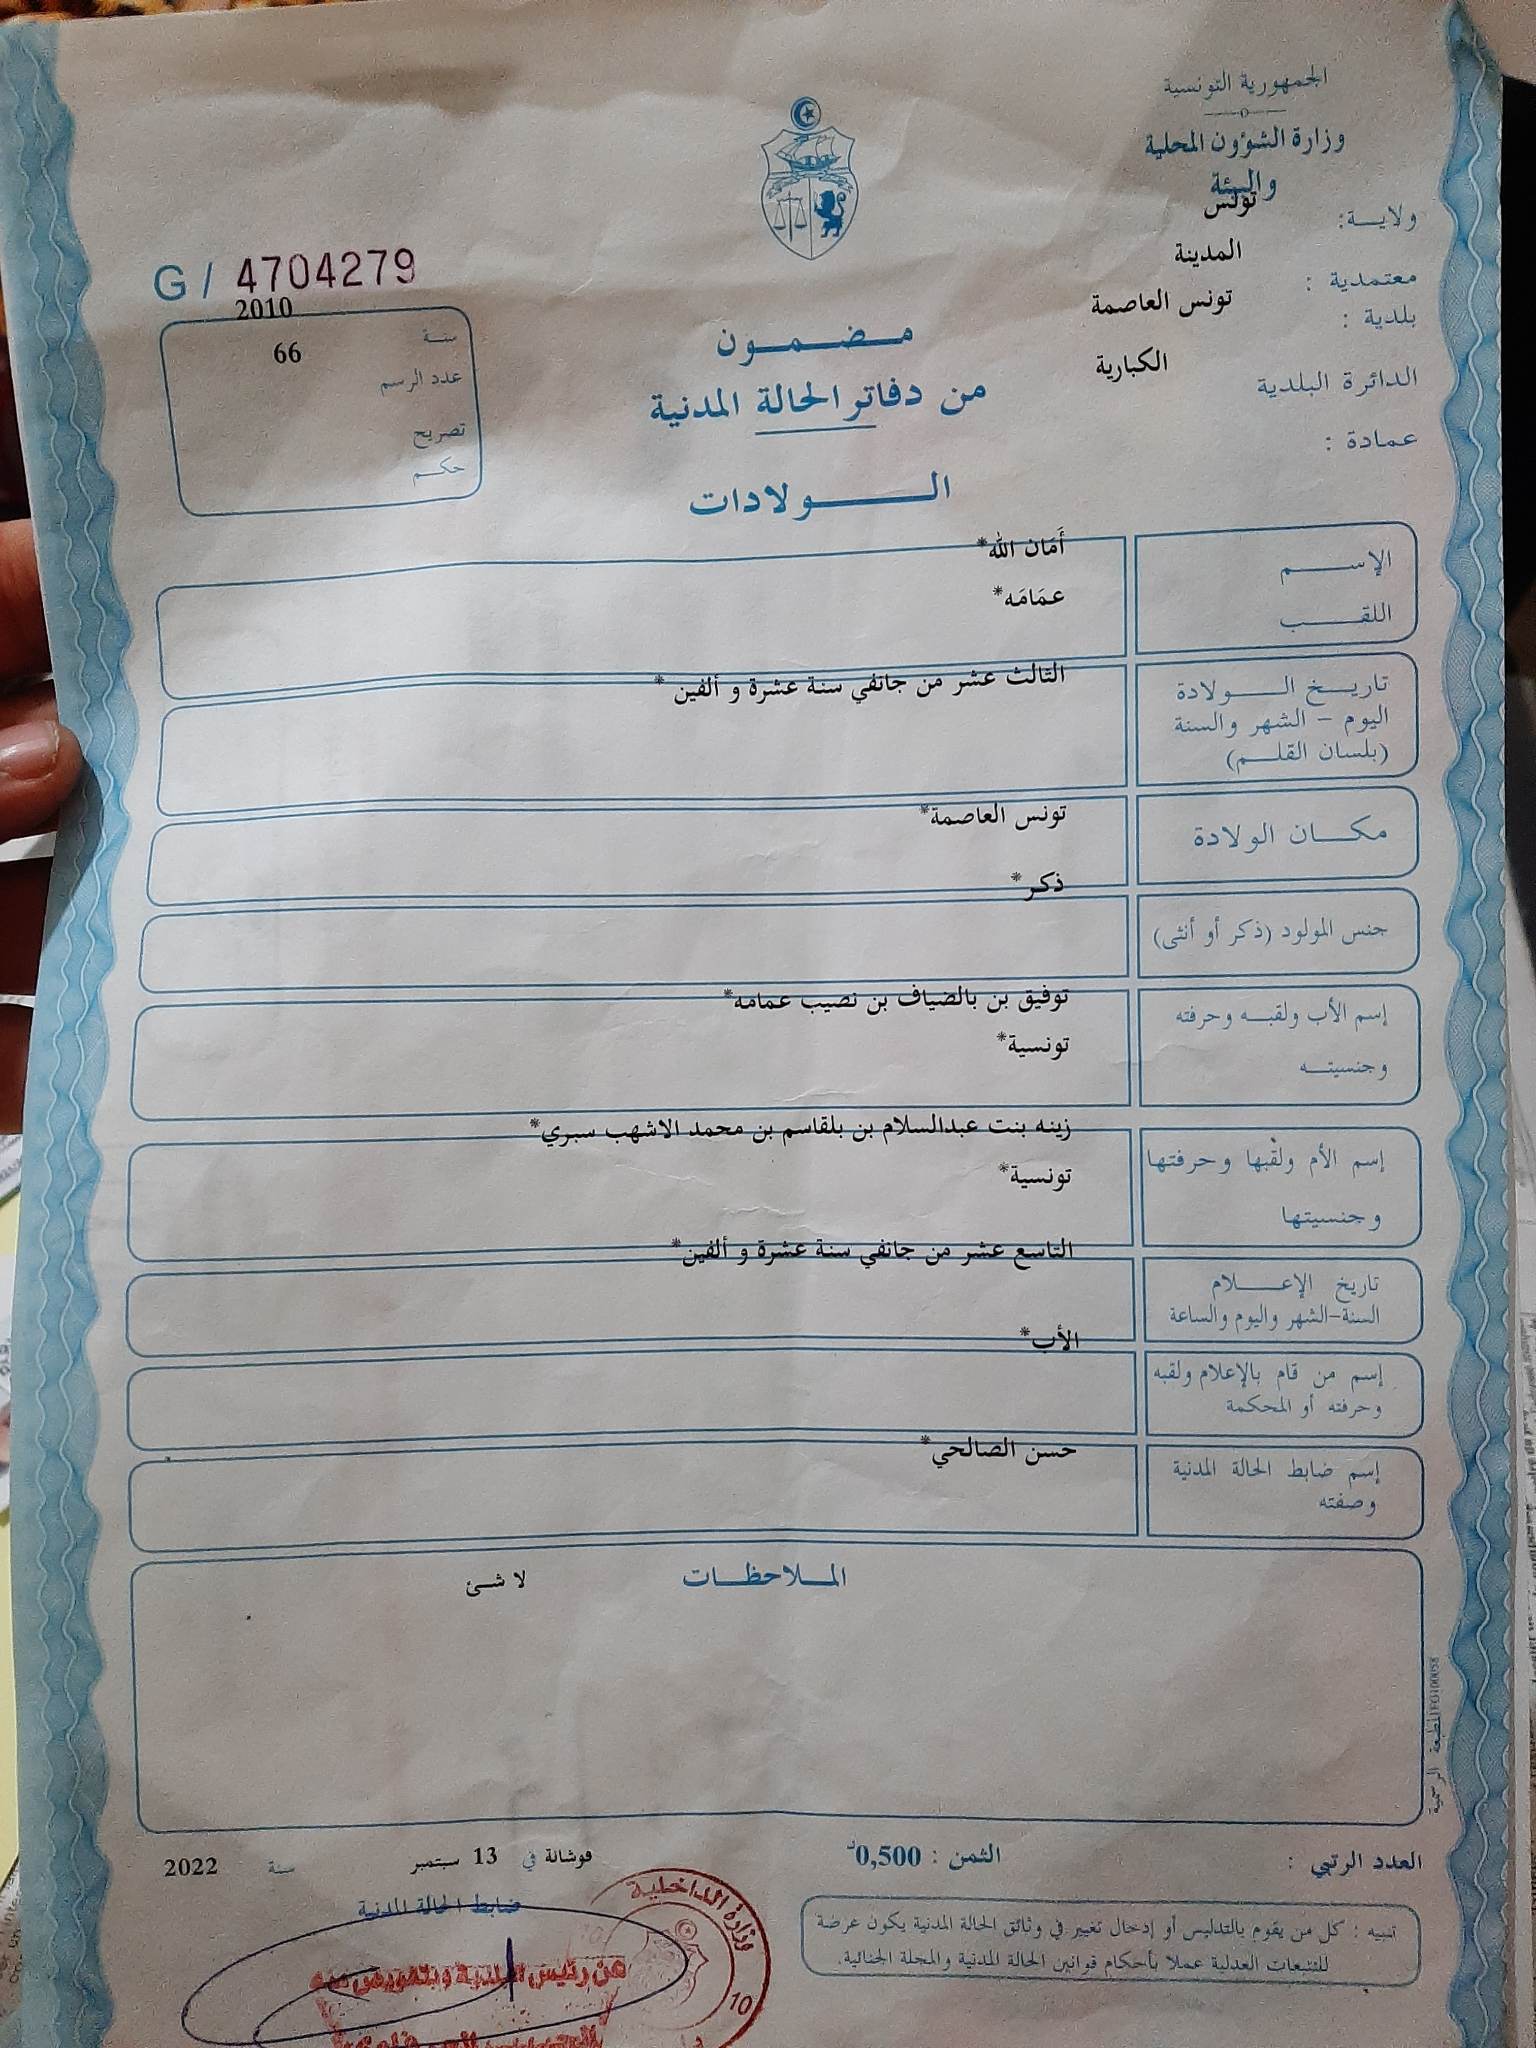 الجمهورية التونسية
وزارة الشؤون المحلية
والبيئة
ولايــة: تونس
معتمدية : المدينة
بلدية : تونس العاصمة
الدائرة البلدية الكبارية
عمادة :
G / 4704279
سنة 2010
عدد الرسم 66
تصريح
حكم
مضمون
من دفاتر الحالة المدنية
الولادات
الإسم أَمَان الله*
اللقب عمَامَه*
تاريخ الولادة الثالث عشر من جانفي سنة عشرة و ألفين *
اليوم - الشهر والسنة
(بلسان القلم)
مكان الولادة تونس العاصمة*
جنس المولود (ذكر أو أنثى) ذكر*
إسم الأب ولقبه وحرفته توفيق بن بالضياف بن نصيب عمامه*
وجنسيته تونسية*
إسم الأم ولقبها وحرفتها زينه بنت عبدالسلام بن بلقاسم بن محمد الاشهب سبري*
وجنسيتها تونسية*
تاريخ الإعلام التاسع عشر من جانفي سنة عشرة و ألفين*
السنة-الشهر واليوم والساعة
إسم من قام بالإعلام ولقبه الأب*
وحرفته أو المحكمة
إسم ضابط الحالة المدنية حسن الصالحي*
وصفته
الملاحظات لا شئ
المطبعة الرسمية
العدد الرتبي :
الثمن : 0,500د
فوشانة في 13 سبتمبر سنة 2022
ضابط الحالة المدنية
تنبيه : كل من يقوم بالتدليس أو إدخال تغيير في وثائق الحالة المدنية يكون عرضة
للتتبعات العدلية عملا بأحكام قوانين الحالة المدنية والمجلة الجنائية.
وزارة الداخلية
10
عن رئيس البلدية وبتفويض منه